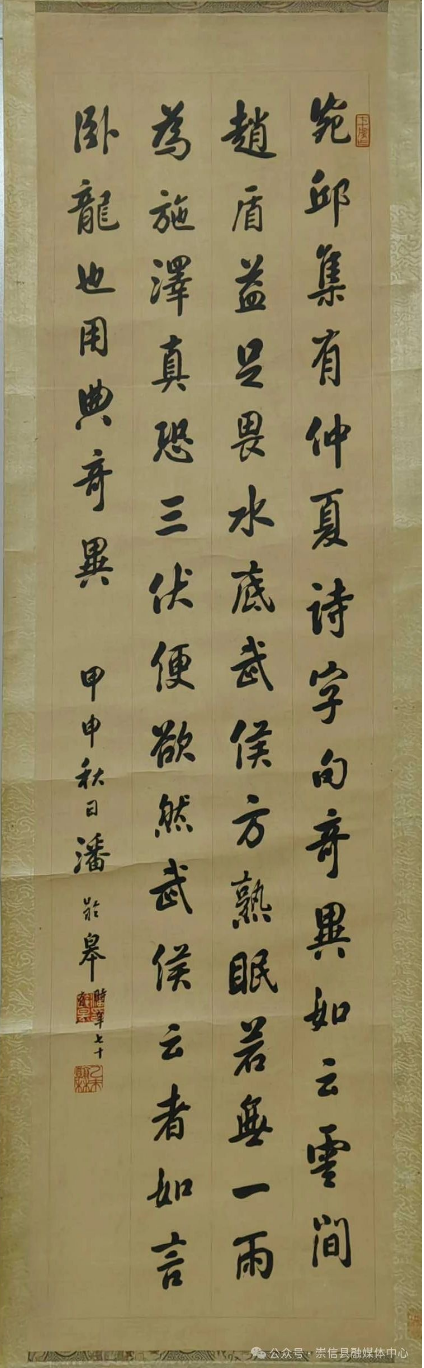 宛邱集有仲夏詩字句奇異如云雲間
趙盾益足畏水底武侯方熟眠若無一雨
為施澤真恐三伏便欲然武侯云者如言
卧龍也用典奇異
甲申秋日潘齡皋時年七十
公众号·崇信县融媒体中心